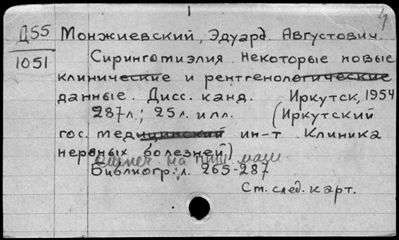 Д55 Монжиевский, Эдуард Августович.
1051 Сирингомиэлия. Некоторые новые
клинические и рентгенологические
данные. Дисс. канд. Иркутск, 1954
287 л.; 25 л. илл. (Иркутский
гос. медицинский ин-т Клиника
нервных болезней)
на пиш маш
Библиогр: л. 265-287
См. след. карт.